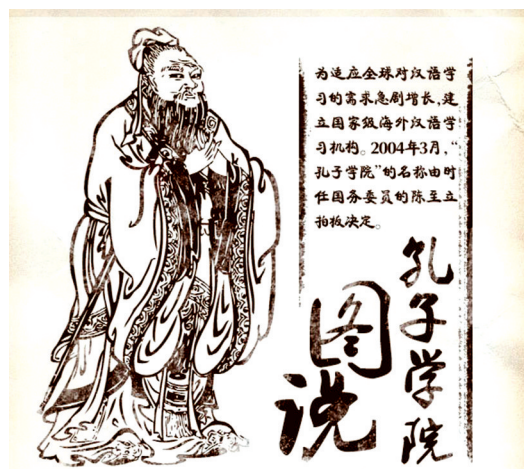 为适应全球对汉语学
习的需求急剧增长,建
立国家级海外汉语学
习机构。2004年3月,“
孔子学院”的名称由时
任国务委员的陈至立
拍板决定。
孔子学院
图说